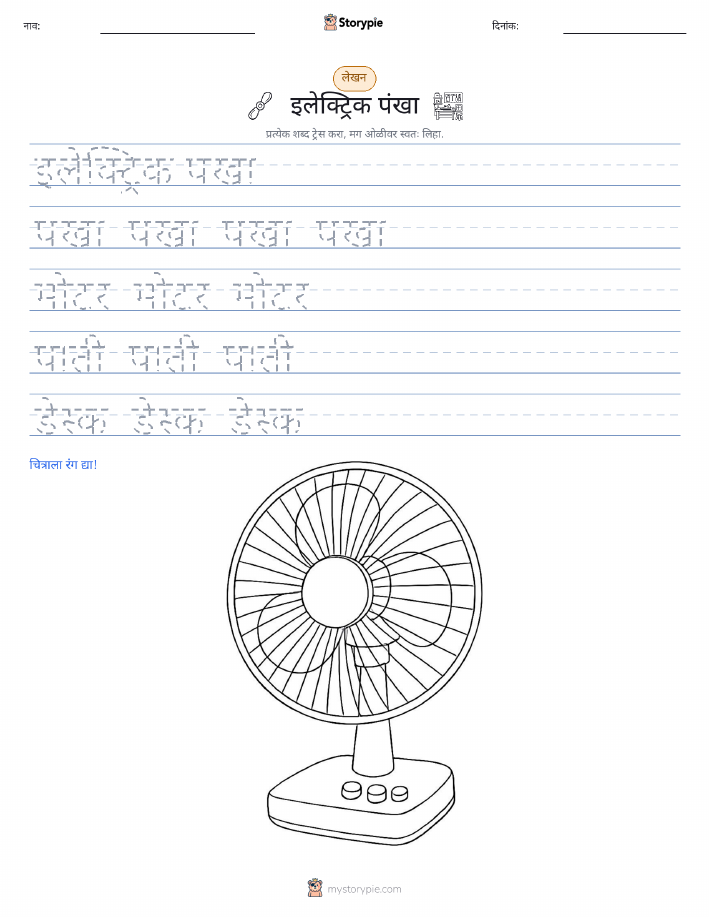 नाव:
Storypie
दिनांक:
लेखन
इलेक्ट्रिक पंखा
प्रत्येक शब्द ट्रेस करा, मग ओळीवर स्वतः लिहा.
इलेक्ट्रिक पंखा
पंखा पंखा पंखा पंखा
मोटर मोटर मोटर
पाती पाती पाती
डेस्क डेस्क डेस्क
चित्राला रंग द्या!
mystorypie.com